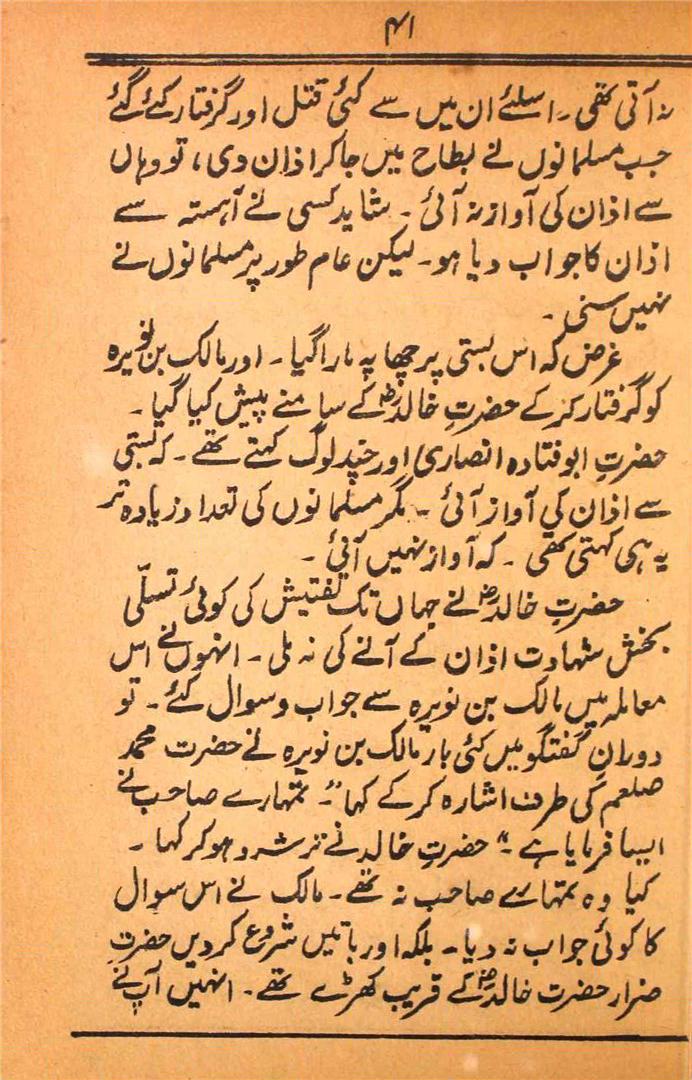 ۴۱
نہ آتی تھی۔ اسلئے ان میں سے کئی قتل اور گرفتار کئے گئے
جب مسلمانوں نے بطاح میں جاکر اذان دی، تو وہاں
سے اذان کی آواز نہ آئی۔ شاید کسی نے آہستہ سے
اذان کا جواب دیا ہو۔ لیکن عام طور پر مسلمانوں نے
نہیں سنی۔
غرض کہ اس بستی پر چھاپہ مارا گیا۔ اور مالک بن نویرہ
کو گرفتار کر کے حضرتِ خالدؓ کے سامنے پیش کیا گیا۔
حضرتِ ابوفتادہ انصاری اور چند لوگ کہتے تھے۔ کہ بستی
سے اذان کی آواز آئی۔ مگر مسلمانوں کی تعداد زیادہ تر
یہ ہی کہتی تھی۔ کہ آواز نہیں آئی۔
حضرتِ خالدؓ نے جہاں تک تفتیش کی کوئی تسلّی
بخش شہادت اذان کے آنے کی نہ ملی۔ انہوں نے اس
معاملہ میں مالک بن نویرہ سے جواب و سوال کئے۔ تو
دورانِ گفتگو میں کئی بار مالک بن نویرہ نے حضرت محمد
صلعم کی طرف اشارہ کر کے کہا "۔ تمہارے صاحب نے
ایسا فرمایا ہے۔" حضرتِ خالد نے ترشرو ہو کر کہا۔
کیا وہ تمہارے صاحب نہ تھے۔ مالک نے اس سوال
کا کوئی جواب نہ دیا۔ بلکہ اور باتیں شروع کر دیں حضرتِ
ضرار حضرت خالدؓ کے قریب کھڑے تھے۔ انہیں آپ نے